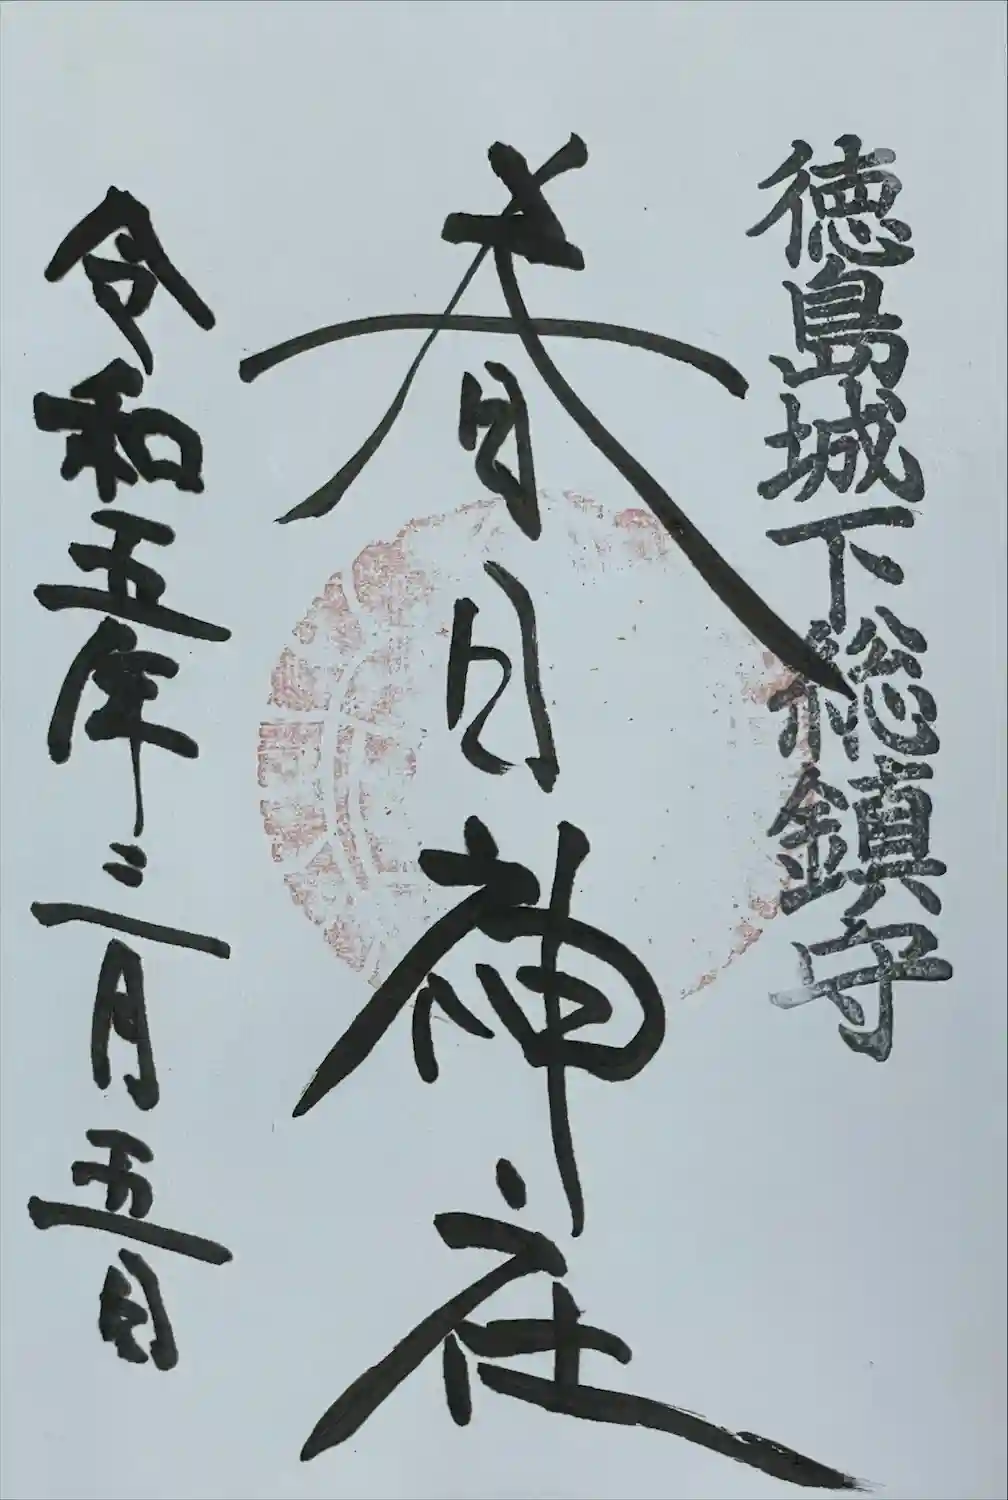 徳島城下総鎮守
春日神社
令和五年三月五日